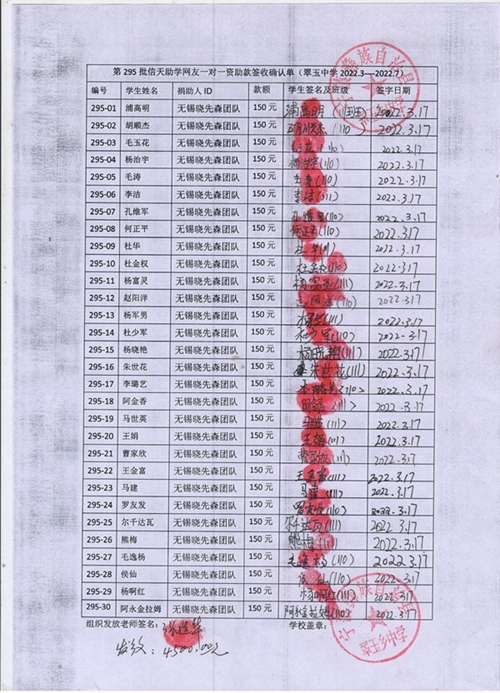 第 295 批信天助学网友一对一资助款签收确认单（翠玉中学 2022.3----2022.7）
编号 学生姓名 捐助人 ID 款额 学生签名及班级 签字日期
295-01 浦高明 无锡晓先森团队 150 元 浦高明 2022.3.17
295-02 胡顺杰 无锡晓先森团队 150 元 (110) 2022.3.17
295-03 毛玉花 无锡晓先森团队 150 元 (110) 2022.3.17
295-04 杨治宇 无锡晓先森团队 150 元 杨治宇(110) 2022.3.17
295-05 毛涛 无锡晓先森团队 150 元 毛涛(110) 2022.3.17
295-06 李洁 无锡晓先森团队 150 元 李洁(111) 2022.3.17
295-07 孔维军 无锡晓先森团队 150 元 (110) 2022.3.17
295-08 何正平 无锡晓先森团队 150 元 何正平(110) 2022.3.17
295-09 杜华 无锡晓先森团队 150 元 杜华 2022.3.17
295-10 杜金权 无锡晓先森团队 150 元 杜金权(110) 2022.3.17
295-11 杨富灵 无锡晓先森团队 150 元 (111) 2022.3.17
295-12 赵阳洋 无锡晓先森团队 150 元 (110) 2022.3.17
295-13 杨军男 无锡晓先森团队 150 元 (111) 2022.3.17
295-14 杜少军 无锡晓先森团队 150 元 (110) 2022.3.17
295-15 杨晓艳 无锡晓先森团队 150 元 杨晓艳(111) 2022.3.17
295-16 朱世花 无锡晓先森团队 150 元 朱世花(111) 2022.3.17
295-17 李璐艺 无锡晓先森团队 150 元 李璐艺<110> 2022.3.17
295-18 阿金香 无锡晓先森团队 150 元 <111> 2022.3.17
295-19 马世英 无锡晓先森团队 150 元 (111) 2022.3.17
295-20 王娟 无锡晓先森团队 150 元 王娟 2022.3.17
295-21 曹家欣 无锡晓先森团队 150 元 曹家欣(111) 2022.3.17
295-22 王金富 无锡晓先森团队 150 元 王金富(111) 2022.3.17
295-23 马建 无锡晓先森团队 150 元 马建(111) 2022.3.17
295-24 罗友发 无锡晓先森团队 150 元 罗友发(110) 2022.3.17
295-25 尔千达瓦 无锡晓先森团队 150 元 (111) 2022.3.17
295-26 熊梅 无锡晓先森团队 150 元 熊梅(111) 2022.3.17
295-27 毛逸杨 无锡晓先森团队 150 元 毛逸杨(110) 2022.3.17
295-28 侯仙 无锡晓先森团队 150 元 (111) 2022.3.17
295-29 杨啊红 无锡晓先森团队 150 元 杨啊红(111) 2022.3.17
295-30 阿永金拉姆 无锡晓先森团队 150 元 阿永金拉姆(110) 2022.3.17
组织发放老师签名： 学校盖章：
发放：4500.00元
翠玉乡中学